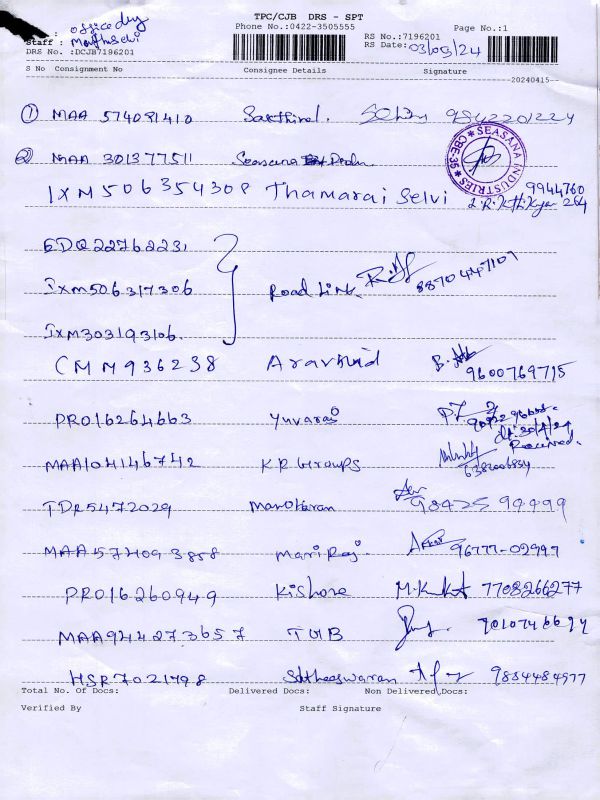 TPC/CJB DRS - SPT
Office dly
Phone No.:0422-3505555 Page No.:1
Staff :
RS No.:7196201
DRS No. :DCJB7196201 RS Date: 03/05/24
S No Consignment No Consignee Details Signature
20240415
① MAA 574091410 Sakthivel. 9842201224
② MAA 301377511 Seasana
SEASANA INDUSTRIES CBE-35
IXM506354308 Thamarai Selvi 9944760
264
EDQ22762231
IXM506317306 Road Link. 8870447109
IXM303193106.
CMM936238 Aravind 9600769715
PRO16264663 Yuvaraj
Received.
MAA104146742 KR Groups 6382006854
TDR5472029 Manokaran 98425 99999
MAA574093858 Mariraj. 96777-02997
PRO16260949 Kishore 7708266277
MAA944273657 TUB
HSR7021798 Satheeswaran 9884484977
Total No. Of Docs: Delivered Docs: Non Delivered Docs:
Verified By Staff Signature